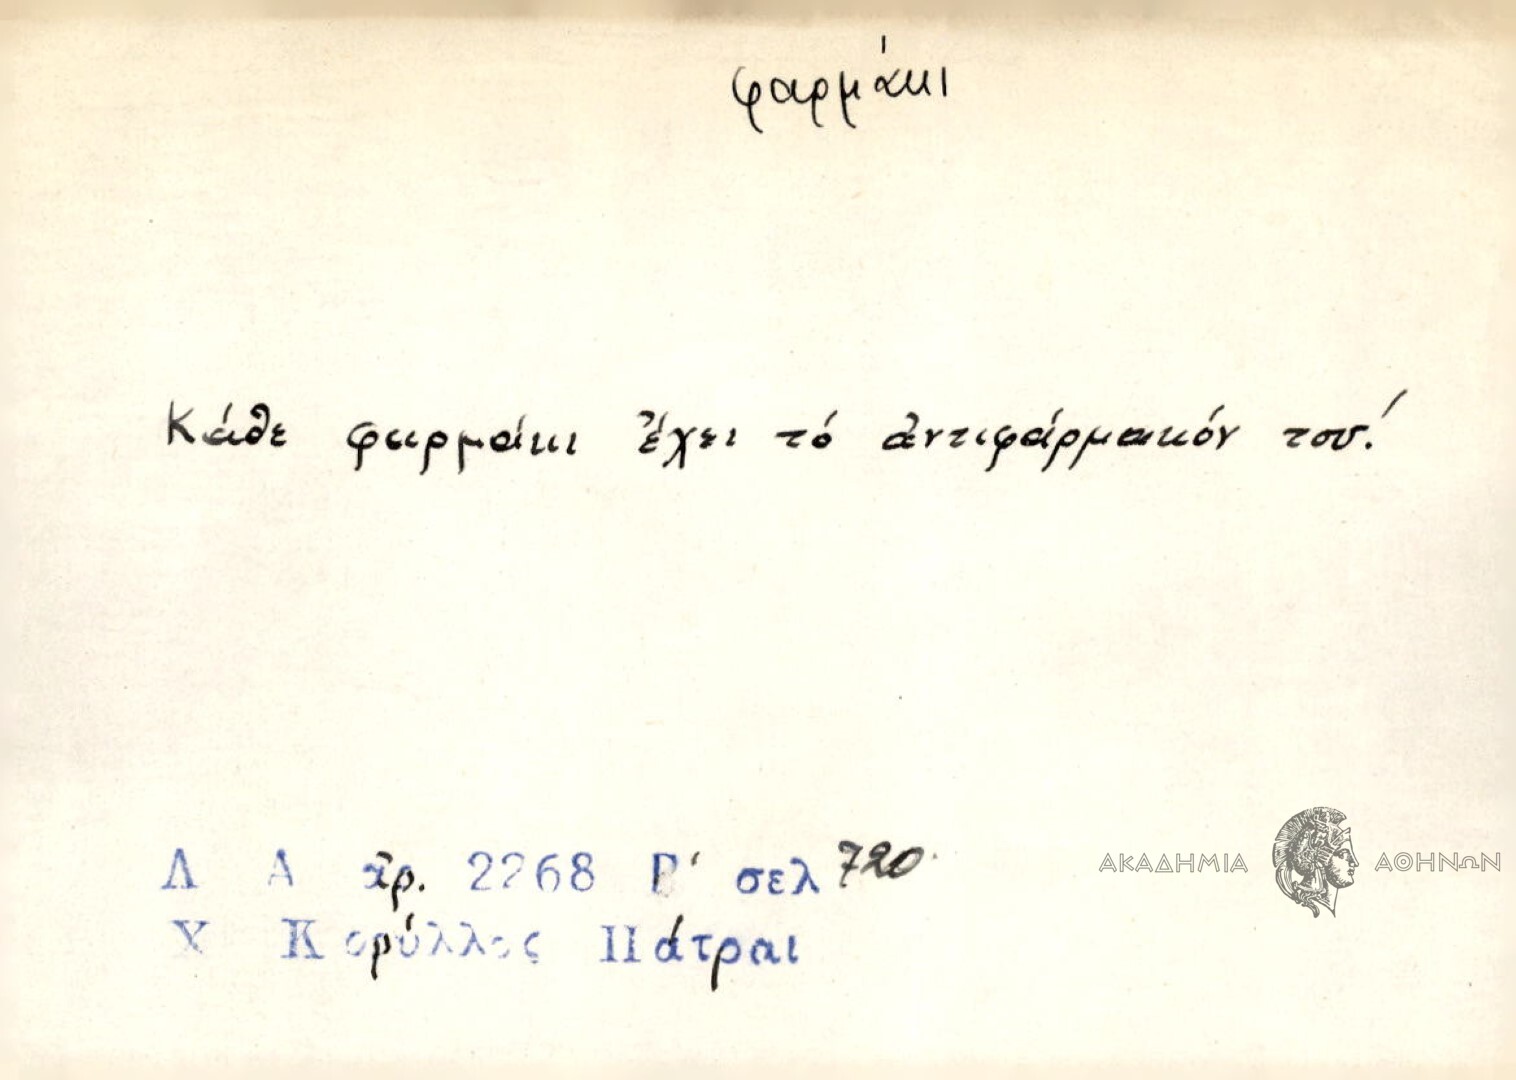 φαρμάκι
Κάθε φαρμάκι ἔχει τό ἀντιφάρμακόν του!
Λ Α ἀρ. 2268 Γ' σελ 720
Χ Κορύλλος Πάτραι
ΑΚΑΔΗΜΙΑ ΑΘΗΝΩΝ